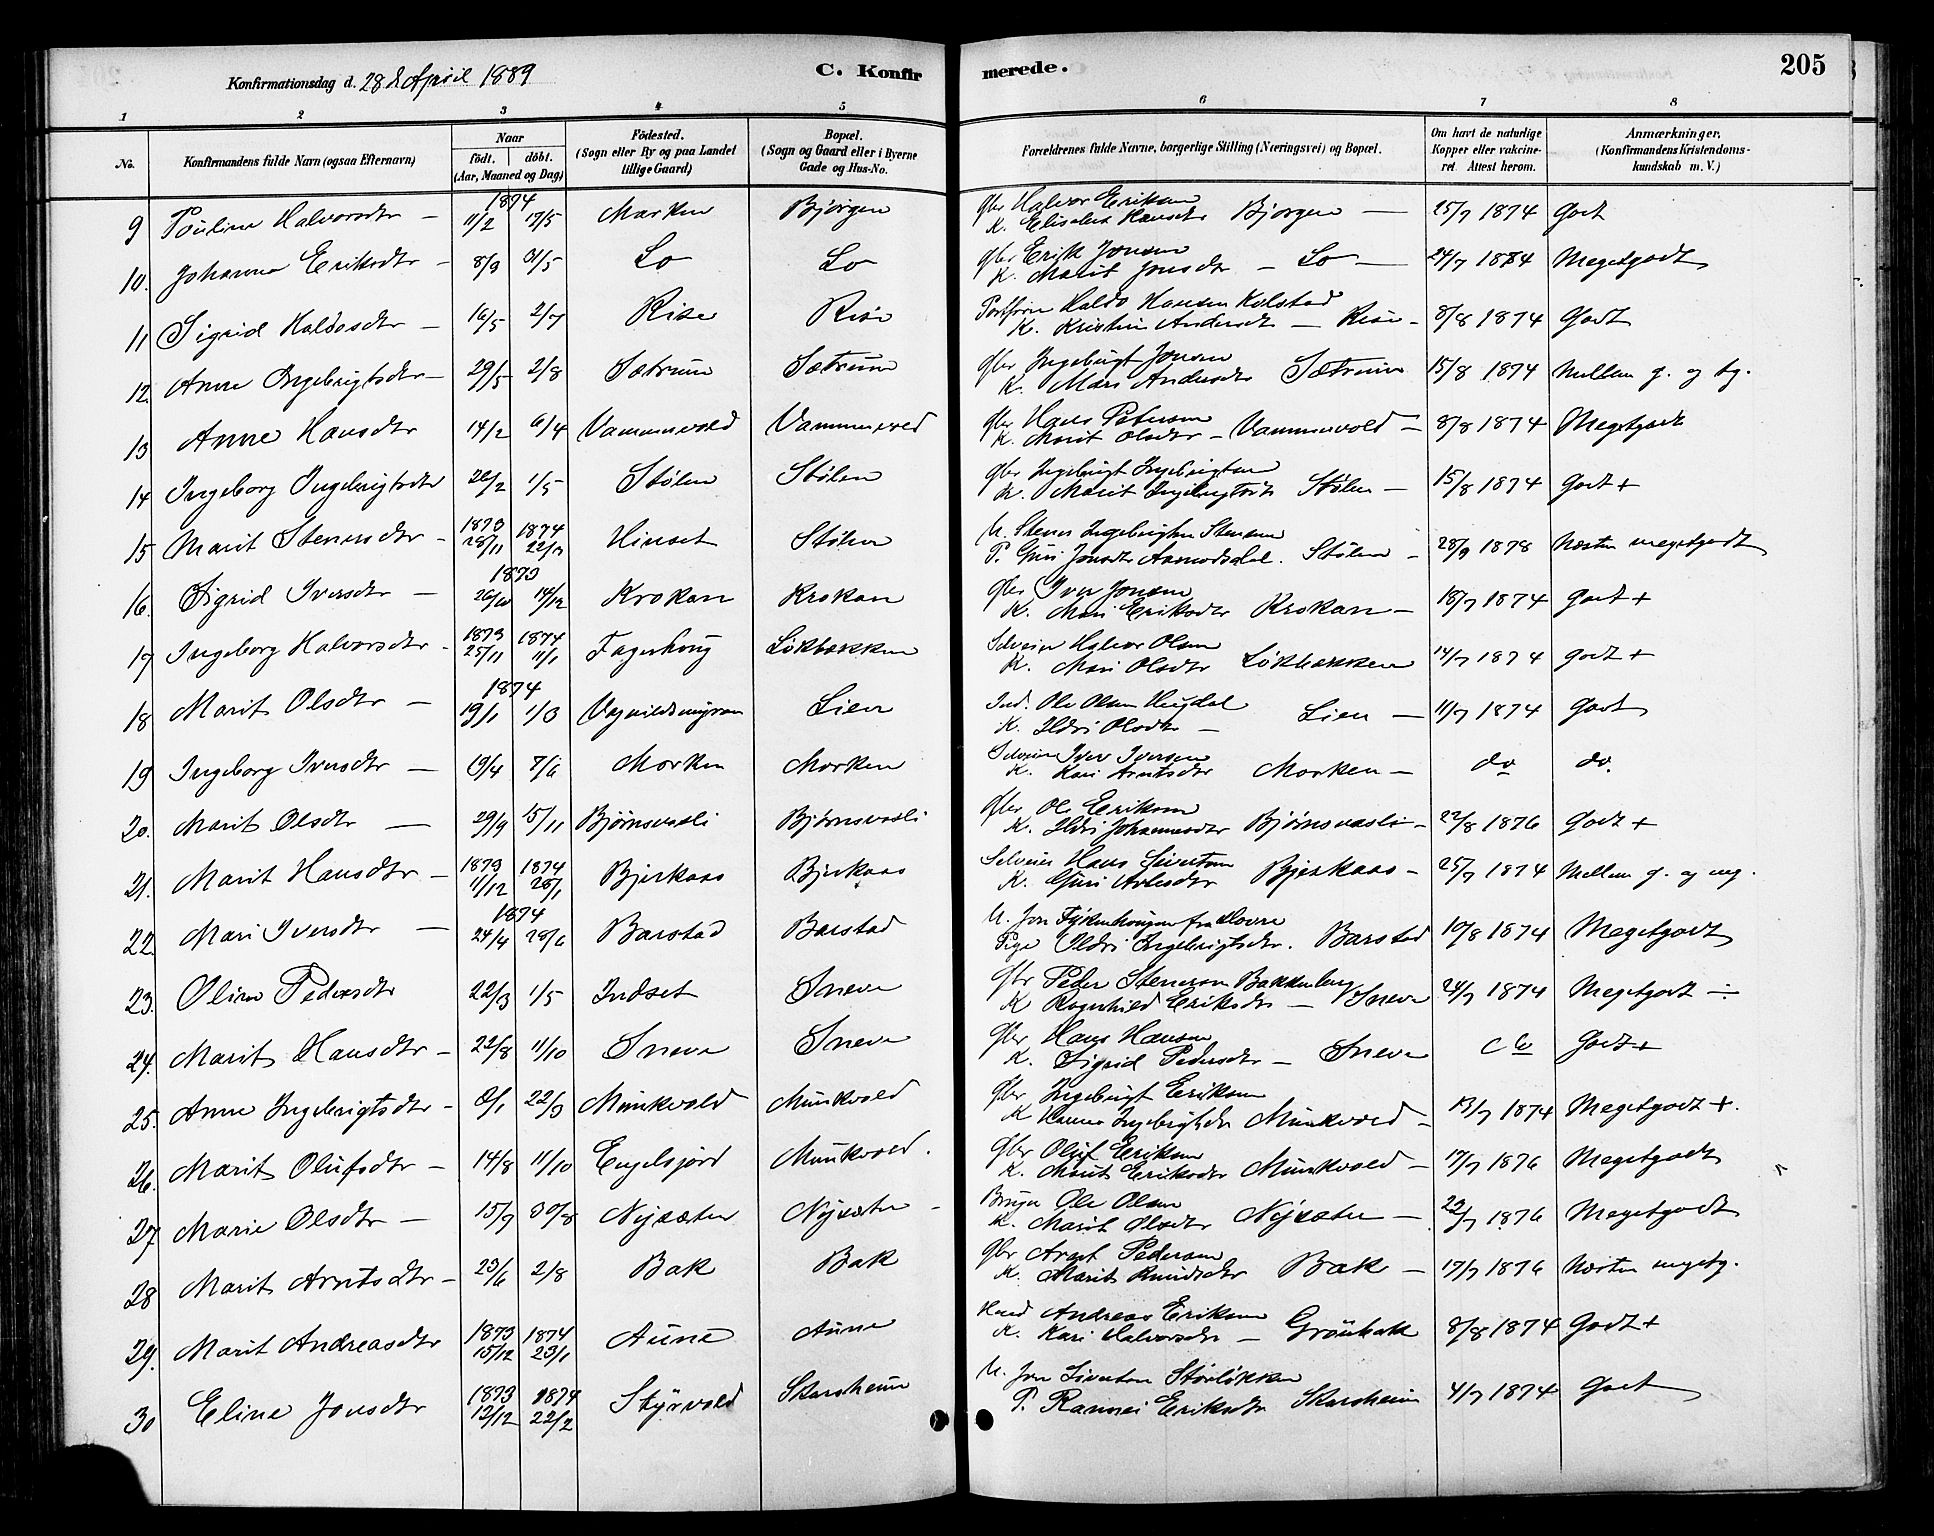 205
Konfirmationsdag d. 28de April 1889
C. Konfirmerede.
1 2 3 4 5 6 7 8
No.
Konfirmandens fulde Navn (ogsaa Efternavn)
Naar
födt. döbt.
(Aar, Maaned og Dag)
Födested.
(Sogn eller By og paa Landet
tillige Gaard)
Bopæl.
(Sogn og Gaard eller i Byerne
Gade og Hus-No.
Forældrenes fulde Navne, borgerlige Stilling (Næringsvei) og Bopæl.
Om havt de naturlige
Kopper eller vakcine-
ret. Attest herom.
Anmærkninger.
(Konfirmandens Kristendoms-
kundskab m. V.)
1874
9 Pouline Halvorsdtr – 11/2 17/5 Morken Bjørgen Gbr Halvor Eriksen
K. Elisabet Hansdtr Bjørgen – 25/7 1874 Godt
10. Johanna Eriksdtr – 8/3 31/5 Lo Lo Gbr Erik Jonsen
K. Marit Jonsdtr – Lo – 24/7 1874 Megetgodt
11 Sigrid Haldosdtr – 16/5 2/7 Rise Rise Haldo Hansen Kolstad
K. Kristin Andersdtr – Rise – 8/8 1874 Godt
12. Anne Ingebrigtsdtr – 29/5 2/8 Sætrum Sætrum Gbr Ingebrigt Jonsen
K. Mari Andersdtr Sætrum 15/8 1874 Mellem g. og tg.
13 Anne Hansdtr 14/2 6/4 Vammervold Vammervold Gbr Hans Petersen
K. Marit Olsdtr – Vammervold – 8/8 1874 Megetgodt
14 Ingeborg Ingebrigtsdtr 22/2 1/5 Stølen Stølen Gbr Ingebrigt Ingebrigtsen
K. Marit Ingebrigtsdtr Stølen – 15/8 1874 Godt +
1873 1874
15 Marit Stenersdtr – 28/11 22/3 Hinset Stølen U. Stener Ingebrigtsen Stenersen
P. Guri Jonsdtr Aamodsdal. Stølen – 28/9 1878 Næsten megetgodt
1873
16. Sigrid Iversdtr – 26/10 14/12 Krokan Krokan Gbr Iver Jonsen
K. Mari Eriksdtr Krokan – 18/7 1874 Godt +
1873 1874
17 Ingeborg Halvorsdtr – 25/11 11/1 Fagerhoug Løkbakken Selveier Halvor Olsen
K. Mari Olsdtr Løkbakken 14/7 1874 Godt +
1874
18 Marit Olsdtr – 19/1 1/3 Vognildsmyren Lien Ind. Ole Olsen Hugdal
K. Ildri Olsdtr – Lien – 11/7 1874 Godt
19 Ingeborg Iversdtr – 19/4 7/6 Morken Morken Selveier Iver Iversen
K. Kari Arntsdtr Morken – do do.
20. Marit Olsdtr – 29/9 15/11 Bjørnsvasli Bjørnsvasli Gbr Ole Eriksen
K. Ildri Johannesdtr Bjørnsvasli – 22/8 1876 Godt +
1873 1874
21. Marit Hansdtr – 11/12 25/1 Bjerkaas Bjerkaas Selveier Hans Sivertsen
K. Guri Atlesdtr Bjerkaas – 25/7 1874 Mellem g. og mg.
1874
22. Mari Iversdtr – 24/4 28/6 Barstad Barstad U. Jon Fykenhougen fra Dovre
Pige Ildri Ingebrigtsdtr. Barstad 10/8 1874 Megetgodt
23. Oline Pedersdtr 22/3 1/5 Indset Sneve Gbr Peder Stenersen Bakkenberg
K Ragnhild Eriksdtr – Sneve 24/7 1874 Megetgodt ÷
24. Marit Hansdtr – 22/8 11/10 Sneve Sneve Gbr Hans Hansen
K. Sigrid Pedersdtr – Sneve do Godt +
25. Anne Ingebrigtsdtr – 8/1 22/3 Munkvold Munkvold Gbr Ingebrigt Eriksen
K Hanna Ingebrigtsdtr Munkvold – 13/7 1874 Megetgodt +.
26. Marit Olufsdtr – 14/8 11/10 Engelsjord Munkvold. Gbr Oluf Eriksen
K. Marit Eriksdtr Munkvold – 17/7 1876 Megetgodt
27 Marie Olsdtr – 15/7 30/8 Nysæter Nysæter – Bruger Ole Olsen
K. Marit Olsdtr Nysæter – 22/7 1876 Megetgodt
28 Marit Arntsdtr – 23/6 2/8 Bak Bak Gbr Arnt Pedersen
K. Marit Knudsdtr Bak – 17/7 1876 Næsten megetg.
1873 1874
29. Marit Andreasdtr 15/12 23/1 Aune Aune Andreas Eriksen
K. Kari Halvorsdtr – Grönbak 8/8 1874 Godt +
1873 1874
30 Eline Jonsdtr 12/12 22/2 Styrvold Skarsheim U. Jon Sivertsen Størløkken
P. Rannei Eriksdtr Skarsheim 4/7 1874 Godt